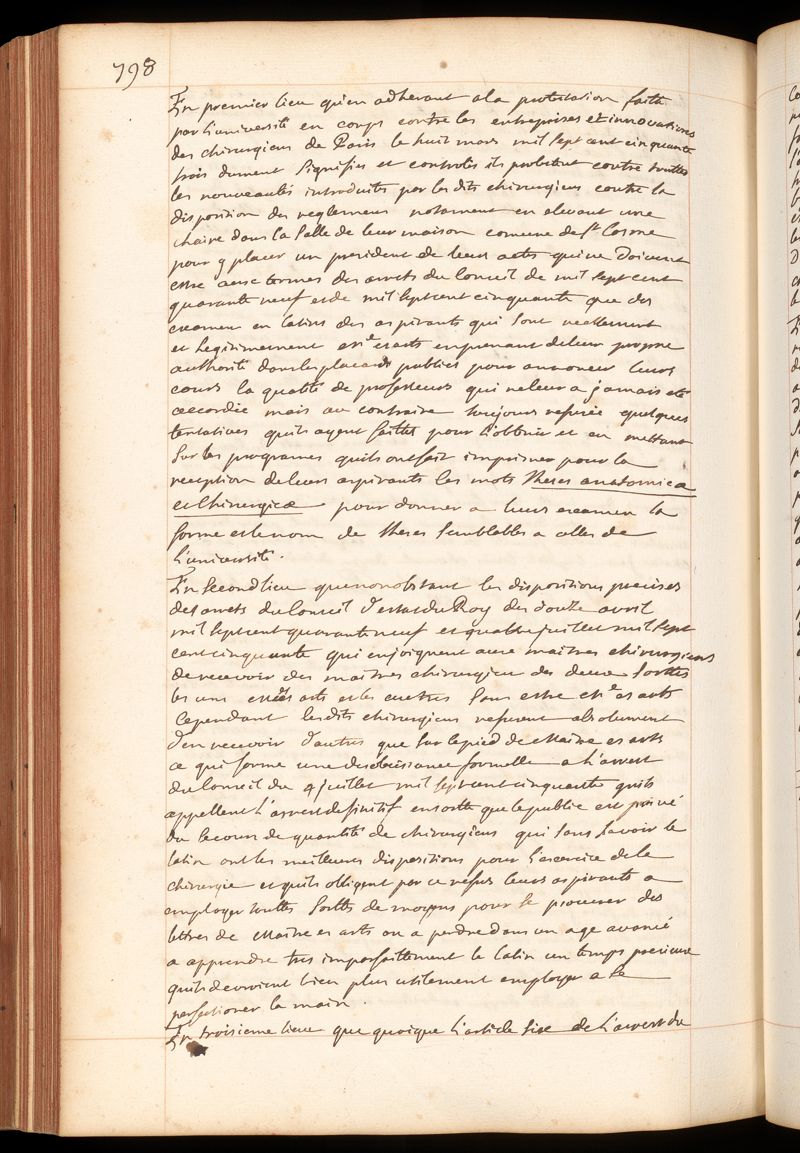 798
En premier lieu qu'en adherant a la protestation faite
par l'université en corps contre les entreprises et innovations
des chirurgiens de Paris le huit mars mil sept cent cinquante
trois dument signifiés et controlés ils protestent contre touttes
les nouveautés introduites par les dits chirurgiens contre la
disposition des reglemens notament en elevant une
chaire dans la salle de leur maison comune de St Cosme
pour y placer un president de leurs actes qui ne doivent
estre aux termes des arrets du Conseil de mil sept cent
quarante neuf et de mil sept cent cinquante que des
examens en latins des aspirants qui sont reellement
et legitimement mes ez arts en prenant de leur propre
authorité dans les placards publics pour annoncer leurs
cours la qualité de professeurs qui ne leur a jamais eté
accordée mais au contraire toujours refusée quelques
tentatives qu'ils ayent faittes pour l'obtenir et en mettant
sur les programes quils ont fait imprimer pour la
reception de leurs aspirants les mots Theses anatomicæ
et Chirurgicæ pour donner a leurs examens la
forme et le nom de theses semblables a celles de
L'université.
En second lieu que nonobstant les dispositions precises
des arrets du Conseil d'estat du Roy des douze avril
mil sept cent quarante neuf et quatre juillet mil sept
cent cinquante qui enjoignent aux maitres chirurgiens
de recevoir des maitres chirurgiens des deux sortes
les uns mes ez arts et les autres sans estre me es arts
Cependant les dits chirurgiens refusent absolument
d'en recevoir d'autres que sur le pied de Maitre es arts
ce qui forme une desobeissance formelle a L'arrest
du Conseil du 4 juillet mil sept cent cinquante quils
appellent L'arrest definitif ensorte que le public est privé
du secours de quantité de chirurgiens qui sans savoir le
latin ont les meilleures dispositions pour l'exercice de la
chirurgie et quils obligent par ce refus leurs aspirants a
employer touttes sortes de moyens pour se procurer des
lettres de Maitre es arts ou a perdre dans un age avancé
a apprendre tres imparfaitement le latin un temps precieux
quils devroient bien plus utilement employer a se
perfectioner la main.
En troisieme lieu que quoique L'article six de L'arrest du